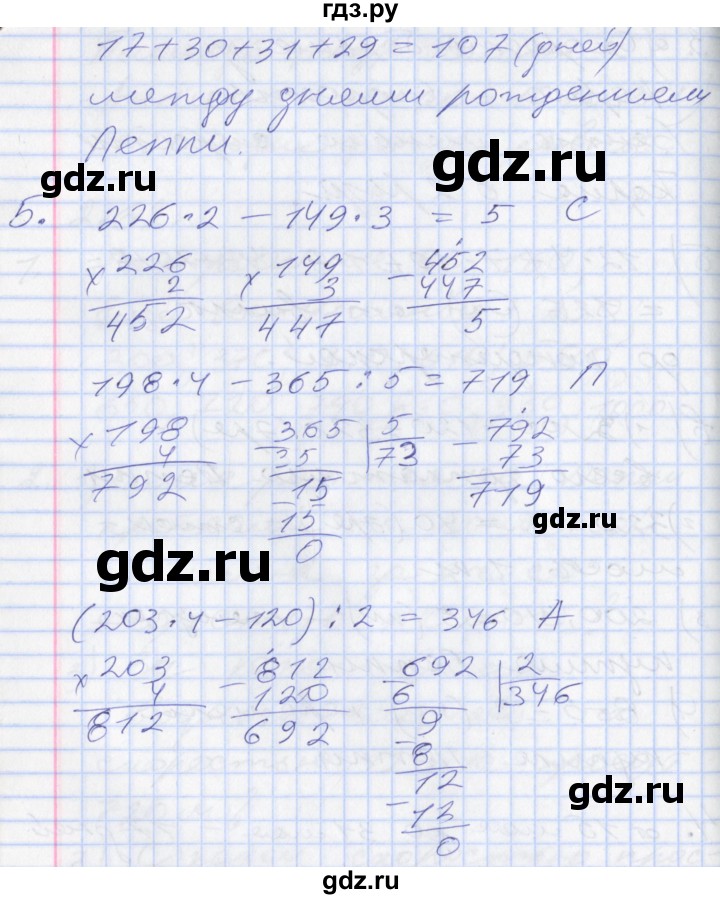 гдз.ру
17+30+31+29 = 107 (дней)
между днями рождениями
Леппи.
gdz.ru
gdz.ru
5. 226·2 - 149·3 = 5 С
×226 ×149 -452
2 3 447
452 447 5
198·4 - 365:5 = 719 П
×198 -365 5 -792
4 35 73 73
792 15 719
-15
0
gdz.ru
gdz.ru
(203·4-120):2 = 346 А
×203 -812 -692 2
4 120 6 346
812 692 9
-8
12
-12
0
gdz.ru
gdz.ru
gdz.ru